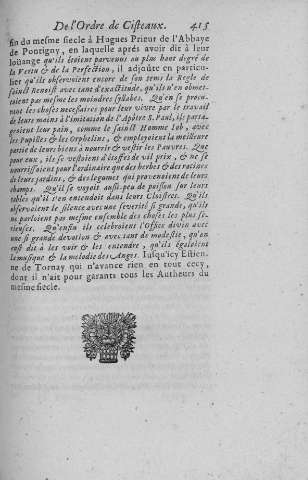 De l'Ordre de Cisteaux. 415
fin du mesme siecle à Hugues Prieur de l'Abbaye
de Pontigny, en laquelle aprés avoir dit à leur
loüange qu'ils étoient parvenus au plus haut degré de
la Vertu & de la Perfection, il adjoûte en particu-
lier qu'ils observoient encore de son tems la Regle de
saint Benoist avec tant d'exactitude, qu'ils n'en obmet-
toient pas mesmes les moindres syllabes. Qu'en se procu-
rant les choses necessaires pour leur vivre par le travail
de leurs mains à l'imitation de l'Apôtre S. Paul, ils parta-
geoient leur pain, comme le sainct Homme Iob, avec
les Pupilles & les Orphelins, & employoient la meilleure
partie de leurs biens à nourrir & vestir les Pauvres. Que
pour eux, ils se vestoient d'étoffes de vil prix, & ne se
nourrissoient pour l'ordinaire que des herbes & des racines
de leurs jardins, & des legumes qui provenoient de leurs
champs. Qu'il se voyoit aussi-peu de poisson sur leurs
tables qu'il s'en entendoit dans leurs Cloistres. Qu'ils
observoient le silence avec une severité si grande, qu'ils
ne parloient pas mesme ensemble des choses les plus se-
rieuses. Qu'enfin ils celebroient l'Office divin avec
une si grande devotion & avec tant de modestie, qu'on
eust dit à les voir & les entendre, qu'ils égaloient
la musique & la melodie des Anges. Iusqu'icy Estien-
ne de Tornay qui n'avance rien en tout cecy,
dont il n'ait pour garants tous les Autheurs du
mesme siecle.